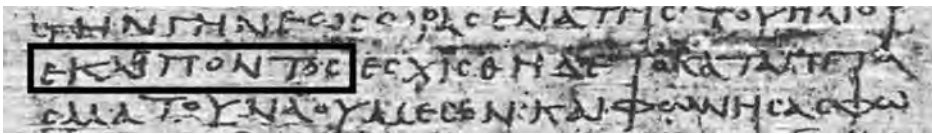 ΤΗΝΓΗΝΕωϹωΡΑϹΕΝΑΤΗϹΤΟΥΗΛΙΟΥ
ΕΚΛΕΙΠΟΝΤΟϹΕϹΧΙϹΘΗΔΕΤΟΚΑΤΑΠΕΤΑ
ϹΜΑΤΟΥΝΑΟΥΜΕϹΟΝ·ΚΑΙΦωΝΗϹΑϹΦω